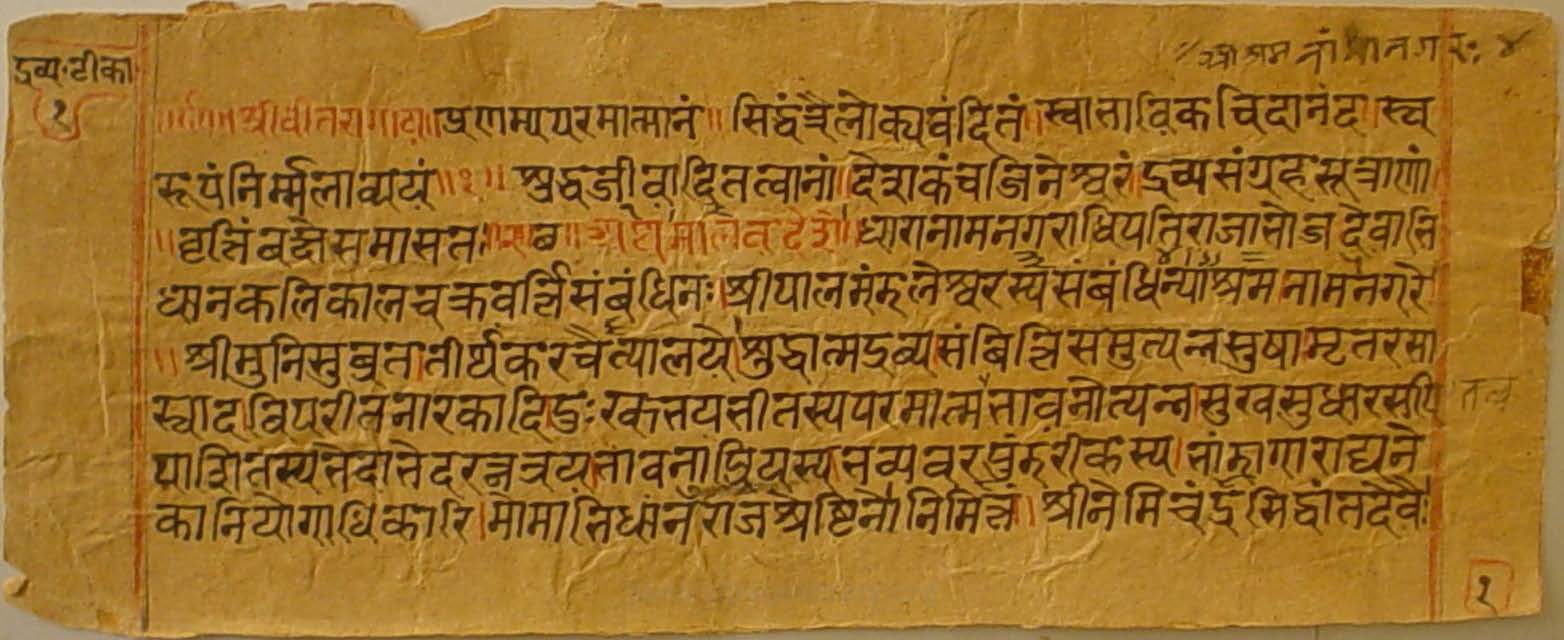 द्रव्य.टीका
१
श्री श्रमनांमानगर: ४
॥श्रीवीतरागाय॥प्रणम्यपरमात्मानं॥सिद्धंत्रैलोक्यवंदितं॥स्वाभाविकचिदानंदा।स्व
रूपंनिर्म्मलाव्ययं॥१॥ शुद्धजीवादितत्वानां।देशकंचजिनेश्वरं।द्रव्यसंग्रहसूत्राणां।
॥वृत्तिंवक्ष्येसमासतः॥२॥ब॥अथमालवदेशे।धारानामनगराधिपतिराजाभोजदेवाभि
धानकलिकालचक्रवर्त्तिसंबंधिनः।श्रीपालमंडलेश्वरस्यसंबंधिन्याश्रमनामनगरे
॥श्रीमुनिसुव्रततीर्थकरचैत्यालये।शुद्धात्मद्रव्यसंबित्तिसमुत्पन्नसुषामृतरसा
स्वाद।विपरीतनारकादिदुःखभयभीतस्यपरमात्मभावनोत्पन्नसुखसुधारसपि
पाशितस्यभेदाभेदरत्नत्रयभावनाप्रियस्यभव्यवरपुंडरीकस्य।भांडागाराद्यने
कानियोगाधिकारि।सोमाभिधानराजश्रेष्टिनो।निमित्तं।श्रीनेमिचंद्रसिद्धांतदेवैः।
१